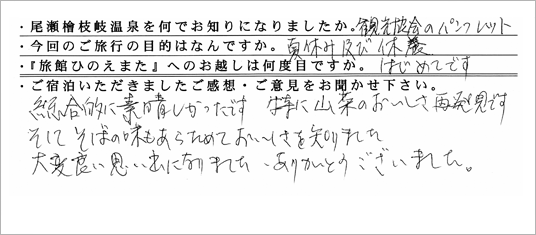 ・尾瀬檜枝岐温泉を何でお知りになりましたか。観光協会のパンフレット
・今回のご旅行の目的はなんですか。夏休み及び休養
・『旅館ひのえまた』へのお越しは何度目ですか。はじめてです
・ご宿泊いただきましたご感想・ご意見をお聞かせ下さい。
総合的に素晴しかったです 特に山菜のおいしさ再発見です
そしてそばの味もあらためておいしさを知りました
大変良い思い出になりました、ありがとうございました。